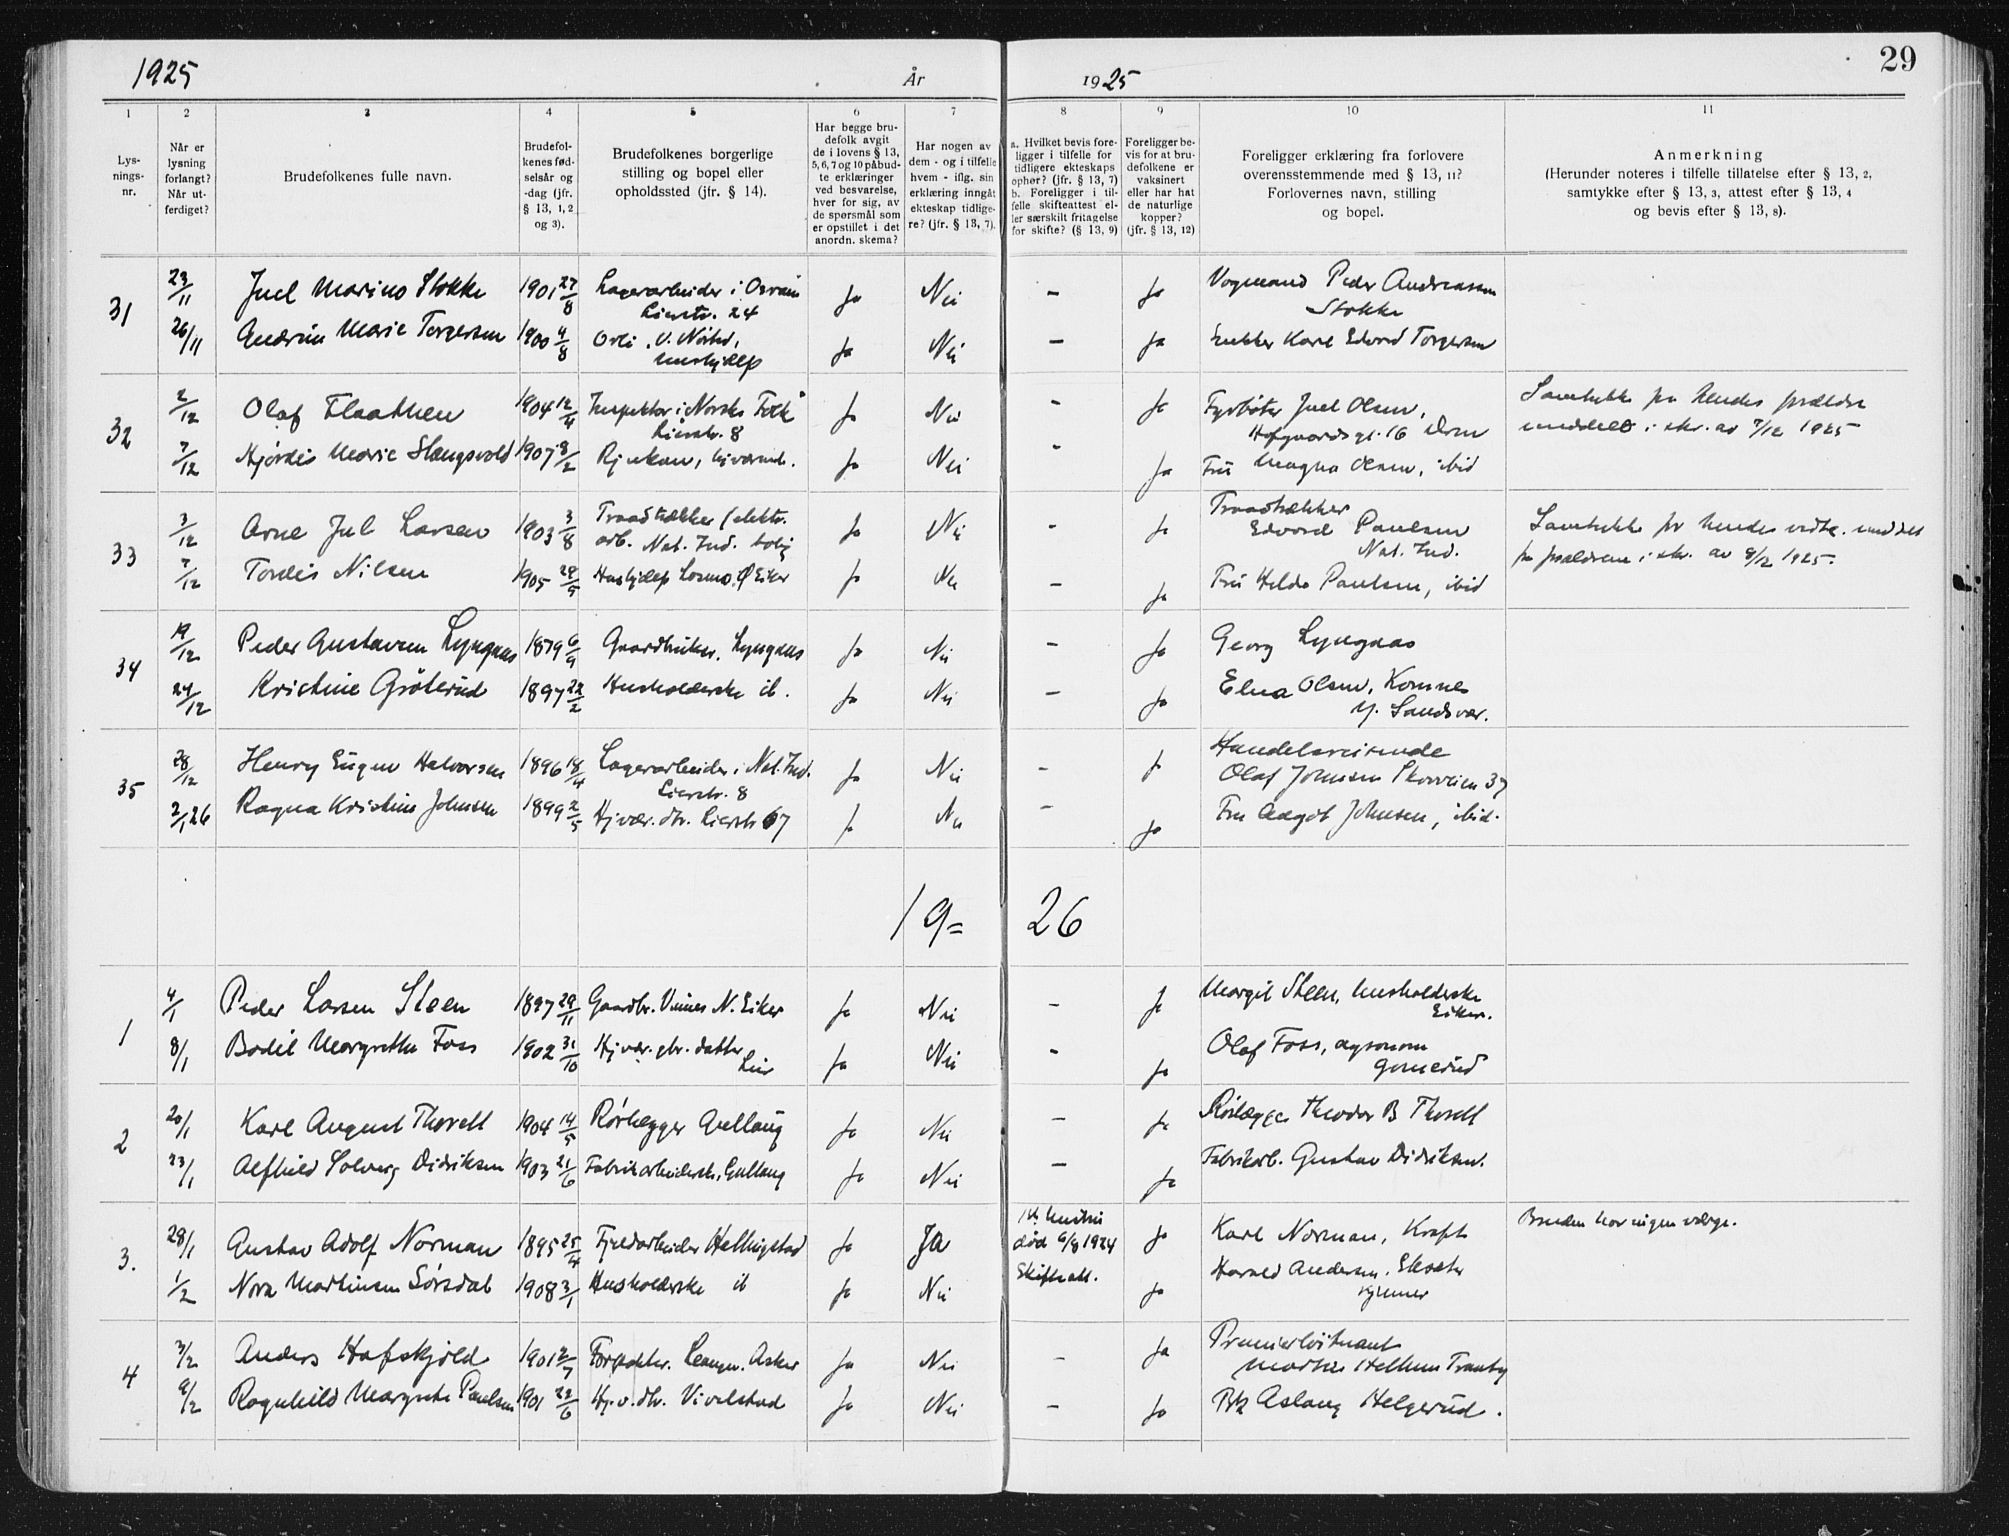 1925
År
1925
29
1 2 3 4 5 6 7 8 9 10 11
Lysnings-nr.
Når er lysning forlangt? Når utferdiget?
Brudefolkenes fulle navn.
Brudefolkenes fødselsår og -dag (jfr. § 13, 1, 2 og 3).
Brudefolkenes borgerlige stilling og bopel eller opholdssted (jfr. § 14).
Har begge brudefolk avgit de i lovens § 13, 5, 6, 7 og 10 påbudte erklæringer ved besvarelse, hver for sig, av de spørsmål som er opstillet i det anordn. skema?
Har nogen av dem - og i tilfelle hvem - iflg. sin erklæring inngåt ekteskap tidligere? (jfr. § 13, 7).
a. Hvilket bevis foreligger i tilfelle for tidligere ekteskaps ophør? (jfr. § 13, 7) b. Foreligger i tilfelle skifteattest eller særskilt fritagelse for skifte? (§ 13, 9)
Foreligger bevis for at brudefolkene er vaksinert eller har hat de naturlige kopper? (jfr. § 13, 12)
Foreligger erklæring fra forlovere overensstemmende med § 13, 11? Forlovernes navn, stilling og bopel.
Anmerkning (Herunder noteres i tilfelle tillatelse efter § 13, 2, samtykke efter § 13, 3, attest efter § 13, 4 og bevis efter § 13, 8).
31 23/11 Juel Marino Stokke 1901 27/8 Lagerarbeider i Osram Lierstr. 24 Ja Nei - Ja Vognmand Peder Andreassen Stokke
26/11 Marie Torgersen 1900 4/8 hushjelp Ja Nei - Ja Enkker Karl Edvard Torgersen
32 2/12 Olaf Flaathen 1904 12/4 Inspektør i Norske Folk Lierstr. 8 Ja Nei - Ja Fyrbøter Juel Olsen, Hofgaardsgt. 16 Drm
7/12 Hjørdis Marie Slængsvold 1907 8/2 Rjukan, hjværend. Ja Nei - Ja Fru Magna Olsen, ibid
Samtykke fra hendes forældre meddelt i skr. av 7/12 1925
33 3/12 Arne Jul Larsen 1903 3/8 Traadtrækker (elektr. arb. Nat. Ind. bolig Ja Nei - Ja Traadtrækker Edvard Paulsen Nat. Ind.
7/12 Tordis Nilsen 1905 Hushjelp Ø Eiker Ja Nei - Ja Fru Hilda Paulsen, ibid
Samtykke for hendes vedk. meddelt fra forældrene i skr. av 8/12 1925.
34 19/12 Peder Gustavsen Lyngaas 1879 6/9 Gaardbruker, Lyngaas Ja Nei - Ja Georg Lyngaas
24/12 Kristine Grøterud 1897 22/2 Husholderske ib. Ja Nei - Ja Elna Olsen, Komnes Y. Sandsvær.
35 28/12 Henry Eugen Halvorsen 1896 18/4 Lagerarbeider i Nat. Ind. Lierstr. 8 Ja Nei - Ja Handelsreisende Olaf Johnsen Skovveien 37
2/1 26 Ragna Kristine Johnsen 1899 2/5 Hjvær. dtr. Lierstr 67 Ja Nei - Ja Fru Aagot Johnsen, ibid.
19= 26
1 4/1 Peder Larsen Steen 1897 29/11 Gaardbr. Vinnes N. Eiker Ja Nei - Ja Margit Steen, husholderske Eiker.
8/1 Bodil Margrethe Foss 1902 31/10 Hjvær. gbr. datter Lier Ja Nei - Ja Olaf Foss, agronom Gomerud
2 20/1 Karl August Thorell 1904 14/5 Rørlegger Gullaug Ja Nei - Ja Rørlægger Theodor B Thorell
23/1 Alfhild Solveig Didriksen 1903 21/6 Fabrikarbeidersk, Gullaug Ja Nei - Ja Fabrikarb. Gustav Didriksen.
3. 28/1 Gustav Adolf Norman 1895 25/4 Fjeldarbeider Hellingstad Ja Ja hustru død 6/8 1924 Skifteatt. Ja Karl Norman, Kraft
Bruden har ingen verge.
1/2 Nora Martinsen Sørsdal 1908 3/1 Husholderske ib Ja Nei Ja Harald Andersen,
4 3/2 Anders Hafskjold 1901 2/7 Forstkt. Asker Ja Nei - Ja Premierløitnant Martin Hellum Tranby
9/2 Ragnhild Margrete Paulsen 1901 22/6 Hj.v.dtr. Vivelstad Ja Nei - Ja Aslaug Helgerud.